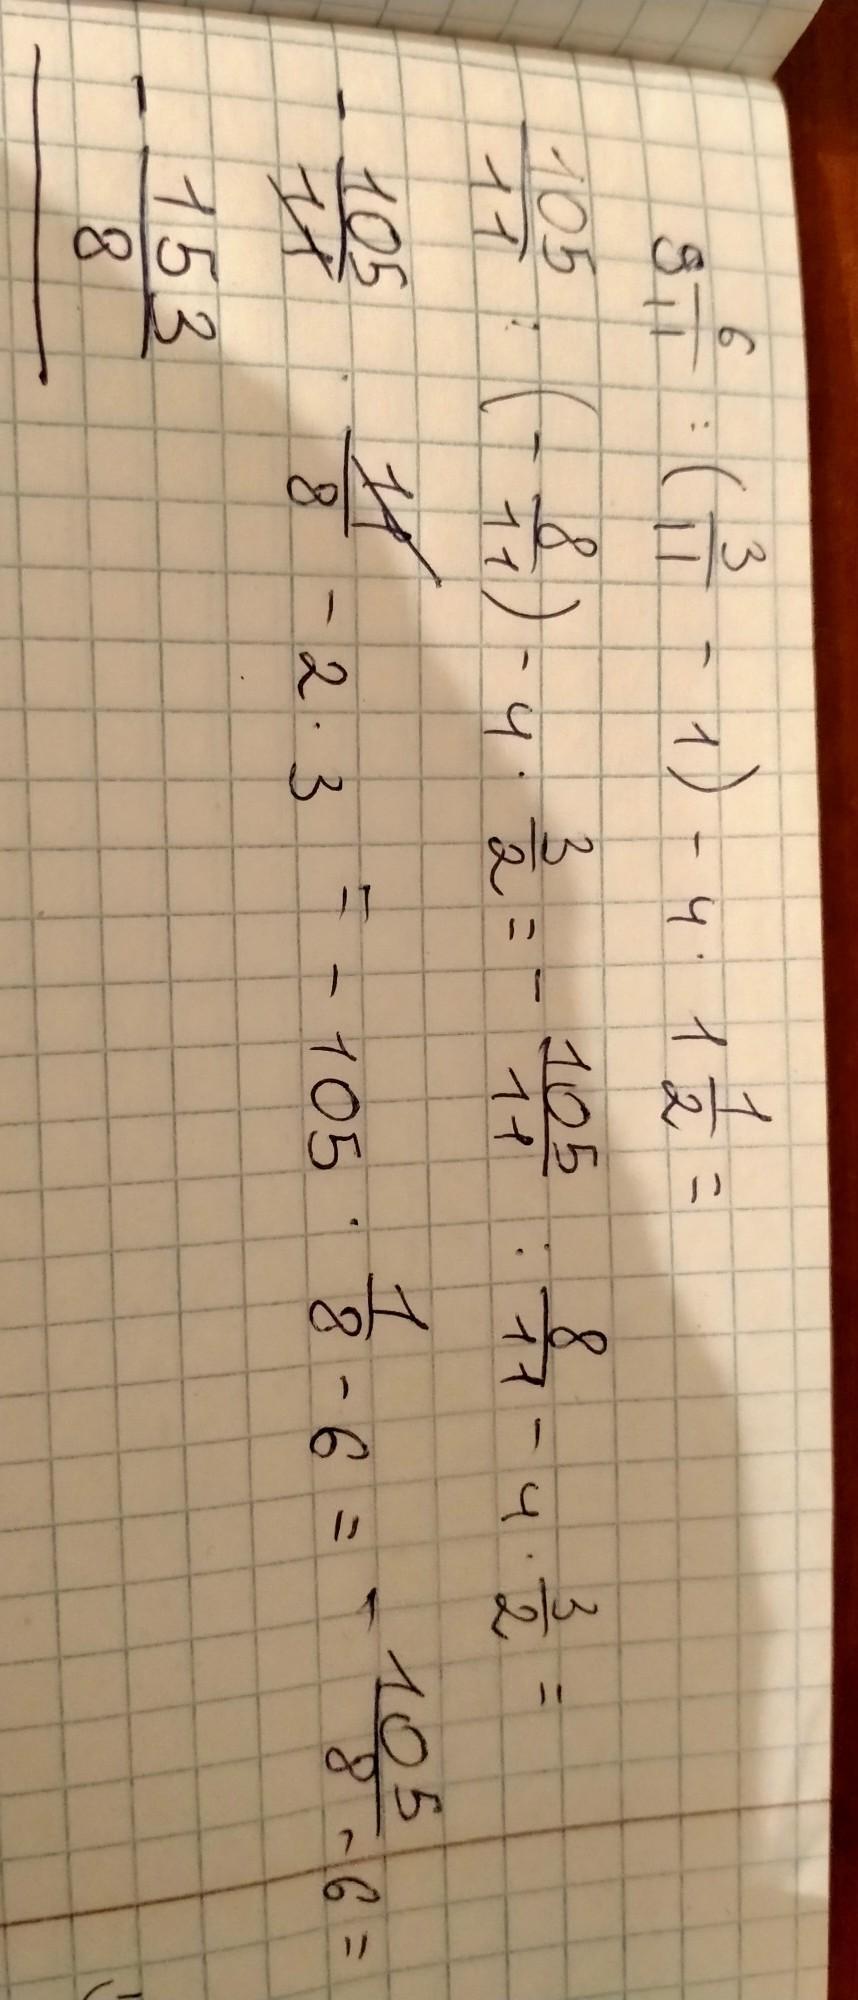 9 6/11 : (3/11 - 1) - 4 · 1 1/2 =
105/11 : (- 8/11) - 4 · 3/2 = - 105/11 : 8/11 - 4 · 3/2 =
- 105/11 · 11/8 - 2 · 3 = - 105 · 1/8 - 6 = - 105/8 - 6 =
- 153/8